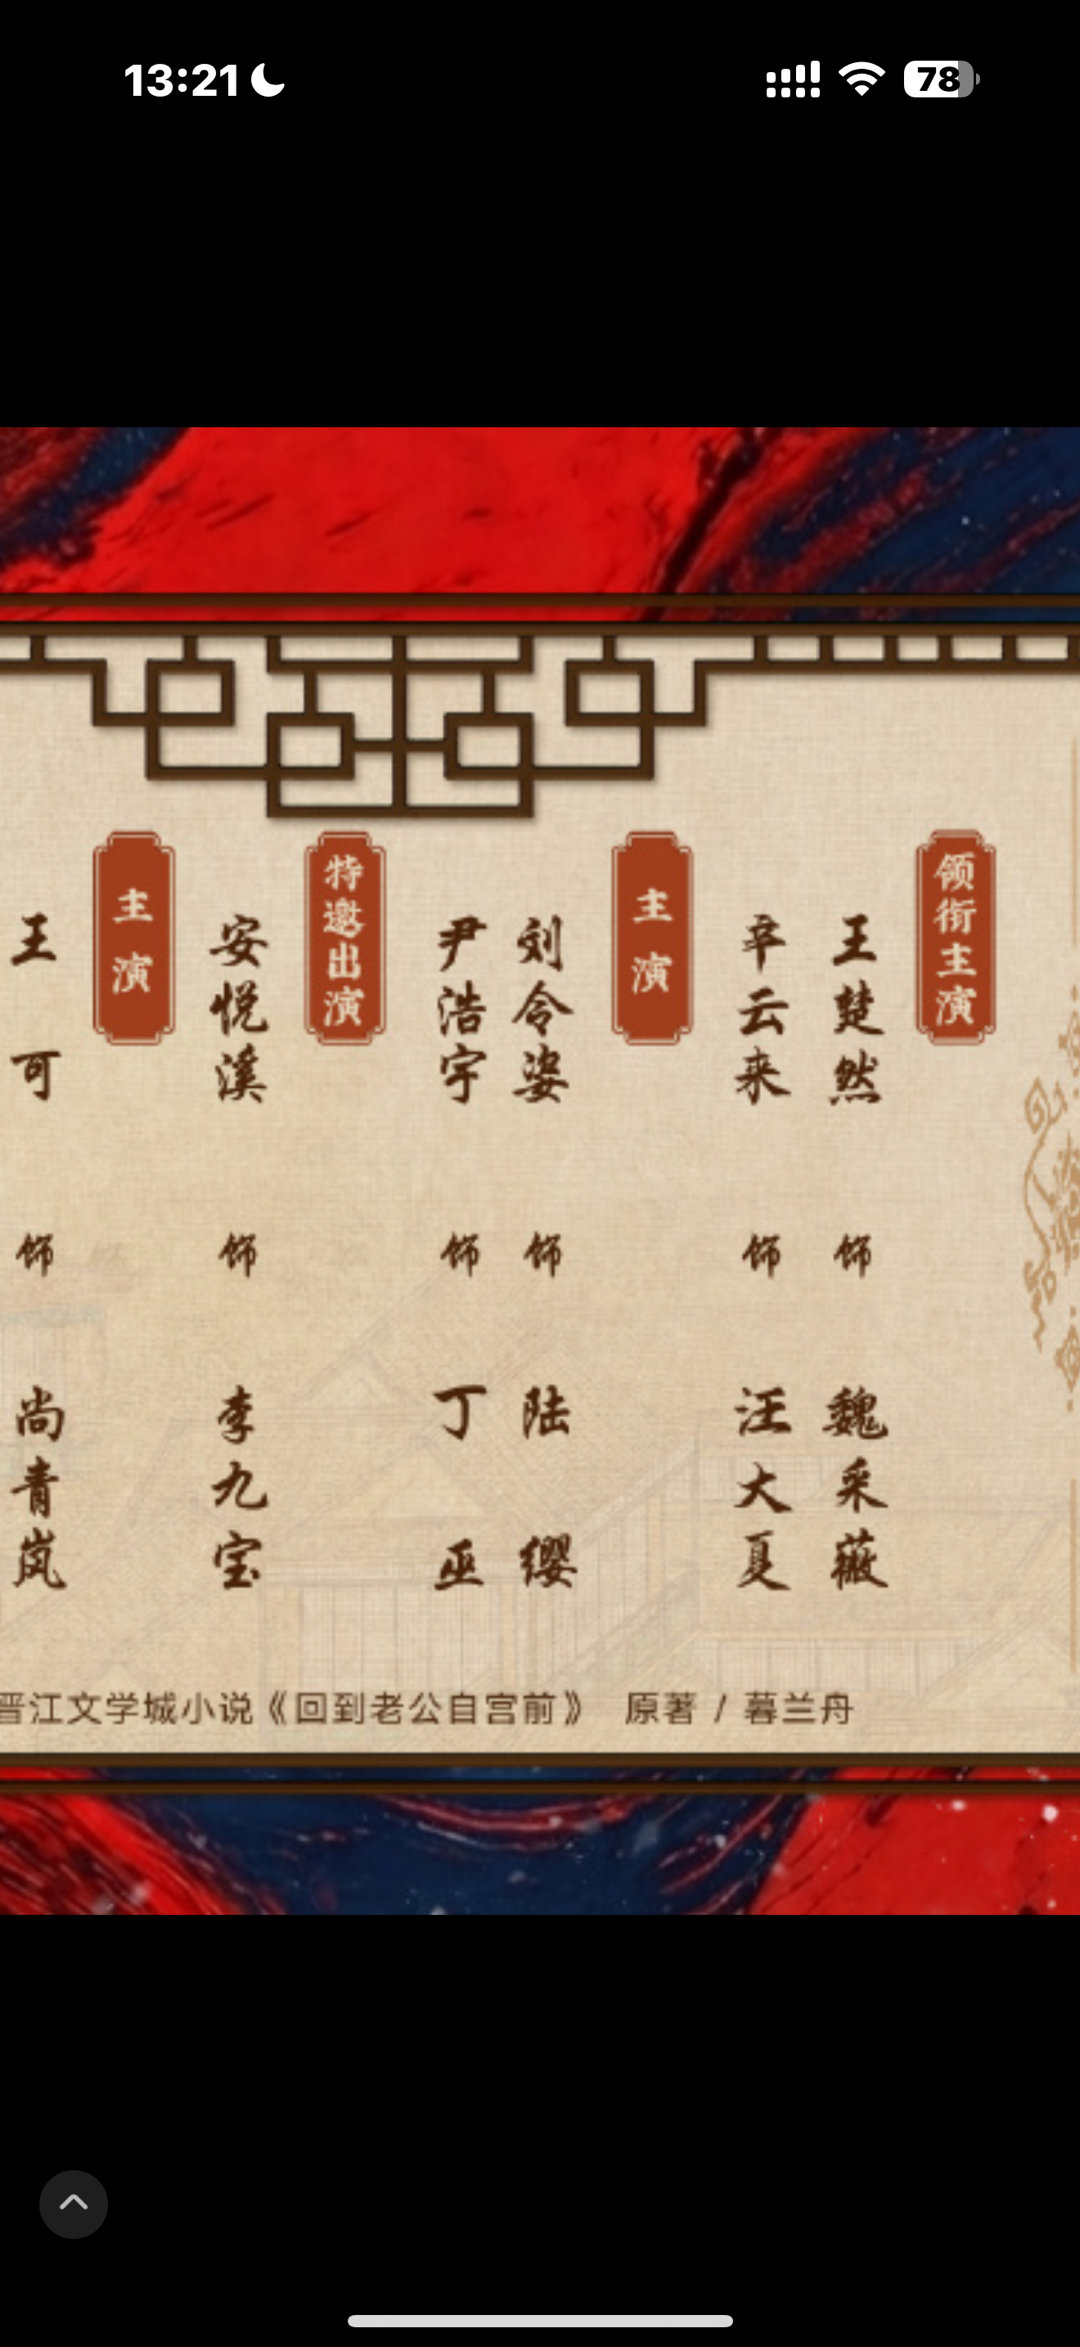 13:21
78
领衔主演
王楚然 饰 魏采薇
辛云来 饰 汪大夏
主演
刘令姿 饰 陆 缨
尹浩宇 饰 丁 巫
特邀出演
安悦溪 饰 李九宝
主演
王 可 饰 尚青岚
晋江文学城小说《回到老公自宫前》 原著 / 暮兰舟